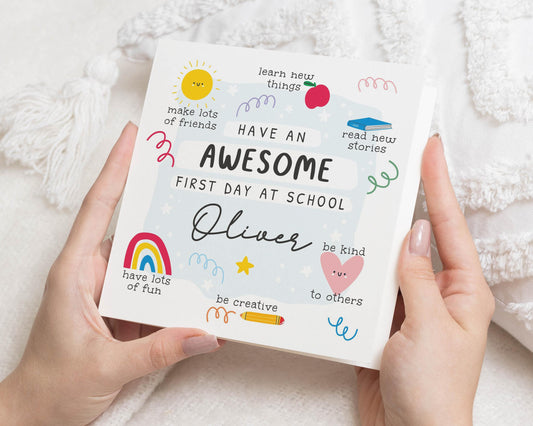 learn new
things
make lots
of friends
read new
stories
HAVE AN
AWESOME
FIRST DAY AT SCHOOL
Oliver
be kind
to others
have lots
of fun
be creative